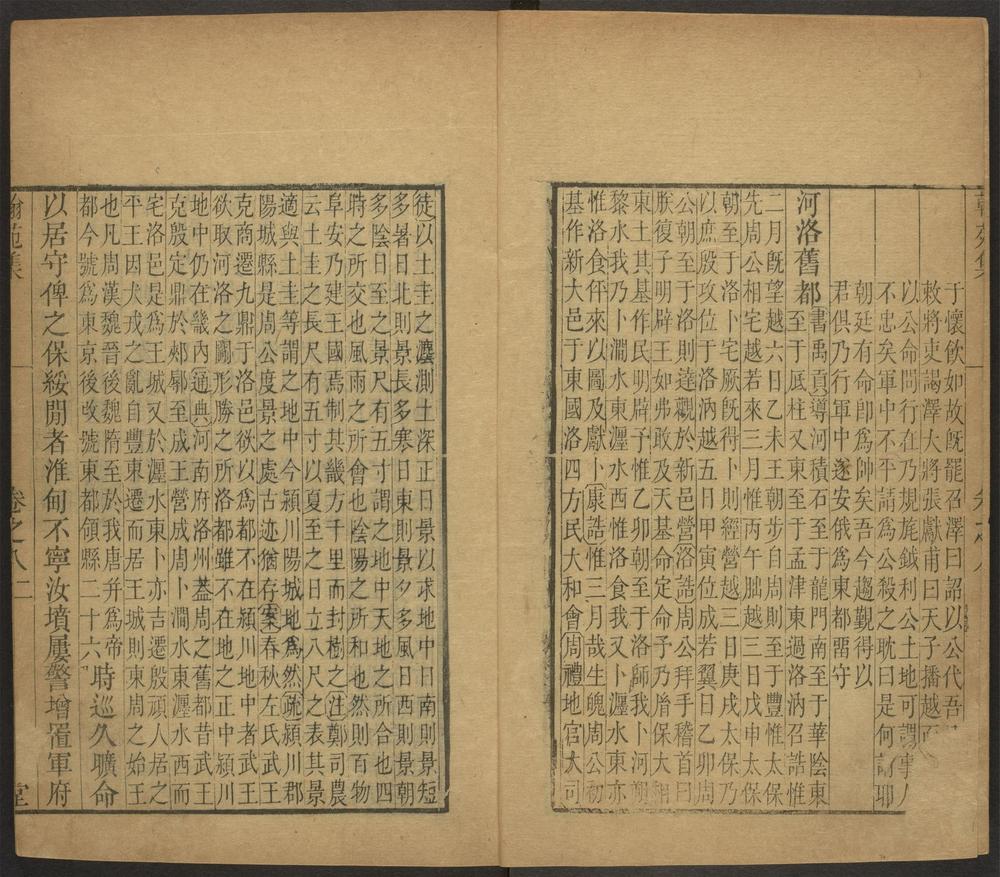 于懷飲如故旣罷召澤曰詔以公代吾
敕將吏謁澤大將張獻甫曰天子播越而
以公命問行在乃規旄鉞利公土地可謂事人
不忠矣軍中不平請爲公殺之耽曰是何謂耶
朝廷有命卽爲帥矣吾今趨覲得以
君俱乃行軍中遂安俄爲東都畱守
河洛舊都
書禹貢導河積石至于龍門南至于華陰東
至于底柱又東至于孟津東過洛汭召誥惟
二月旣望越六日乙未王朝步自周則至于豐惟太保
先周公相宅越若來三月惟丙午朏越三日戊申太保
朝至于洛卜宅厥旣得卜則經營越三日庚戌太保乃
以庶殷攻位于洛汭越五日甲寅位成若翼日乙卯周
公朝至于洛則達觀於新邑營洛誥周公拜手稽首曰
朕復子明辟王如弗敢及天基命定命予乃胤保大相
東土其基作民明辟予惟乙卯朝至于洛師我卜河朔
黎水我乃卜澗水東瀍水西惟洛食我又卜瀍水東亦
惟洛食伻來以圖及獻卜康誥惟三月哉生魄周公初
基作新大邑于東國洛四方民大和會周禮地官大司
徒以土圭之灋測土深正日景以求地中日南則景短
多暑日北則景長多寒日東則景夕多風日西則景朝
多陰日至之景尺有五寸謂之地中天地之所合也四
時之所交也風雨之所會也陰陽之所和也然則百物
阜安乃建王國焉制其畿方千里而封樹之注鄭司農
云土圭之長尺有五寸以夏至之日立八尺之表其景
適與土圭等謂之地中今潁川陽城地爲然疏潁川郡
陽城縣是周公度景之處古迹猶存案春秋左氏武王
克商遷九鼎于洛邑欲以爲都不在潁川地中者武王
欲取河洛之闢形勝之所洛都雖不在地之正中潁川
地中仍在畿內通典河南府洛州葢周之舊都昔武王
克殷定鼎於郟鄏至成王營成周卜澗水東瀍水西而
宅洛邑是爲王城又於瀍水東卜亦吉遷殷頑人居之
平王因犬戎之亂自豐東遷而居王城則東周之始王
也凡周漢魏晉後魏隋至於我唐并爲帝
都今號爲東京後改號東都領縣二十六
時巡久曠命
以居守俾之保綏閒者淮甸不寧汝墳屢警增置軍府
翰苑集 卷之八 二 堂